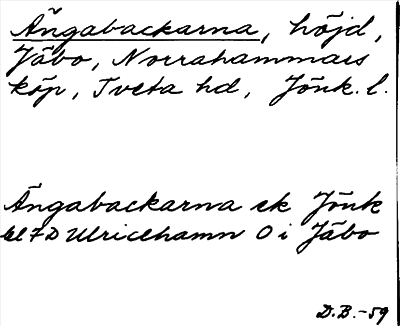 Ängabackarna, höjd,
Jäbo, Norrahammars
köp, Tveta hd, Jönk. l.
Ängabackarna ek Jönk
bl 7 D Ulricehamn O i Jäbo
D.B.-59